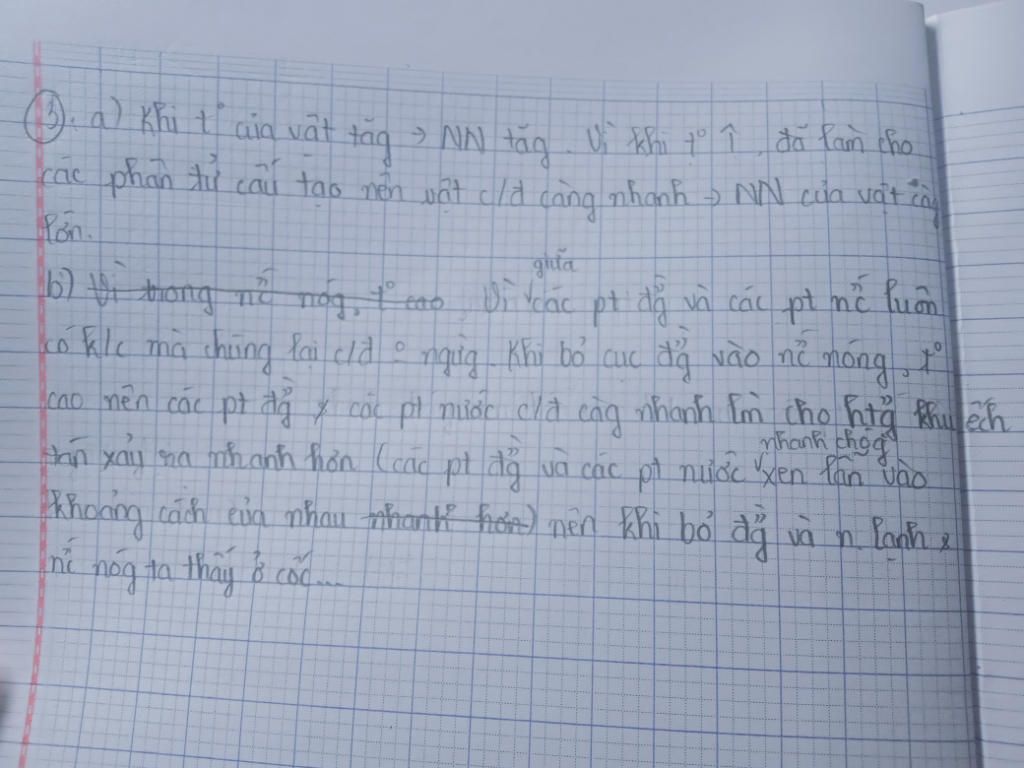 ③. a) Khi t° của vật tăg → NN tăg. Vì khi t° ↑, đã làm cho
các phân tử cấu tạo nên vật c/đ càng nhanh → NN của vật càg
lớn.
b) Vì trong nc nóng, t° cao Vì giữa các pt đg và các pt nc luôn
có k/c mà chúng lại c/đ ° ngừg. Khi bỏ cục đg vào nc nóng, t°
cao nên các pt đg & các pt nước c/đ càg nhanh làm cho htg khuyếch
tán xảy ra nhanh hơn (các pt đg và các pt nước nhanh chóg xen lẫn vào
khoảng cách của nhau nhanh hơn) nên khi bỏ đg và n. lạnh &
nc nóg ta thấy ở cốc...